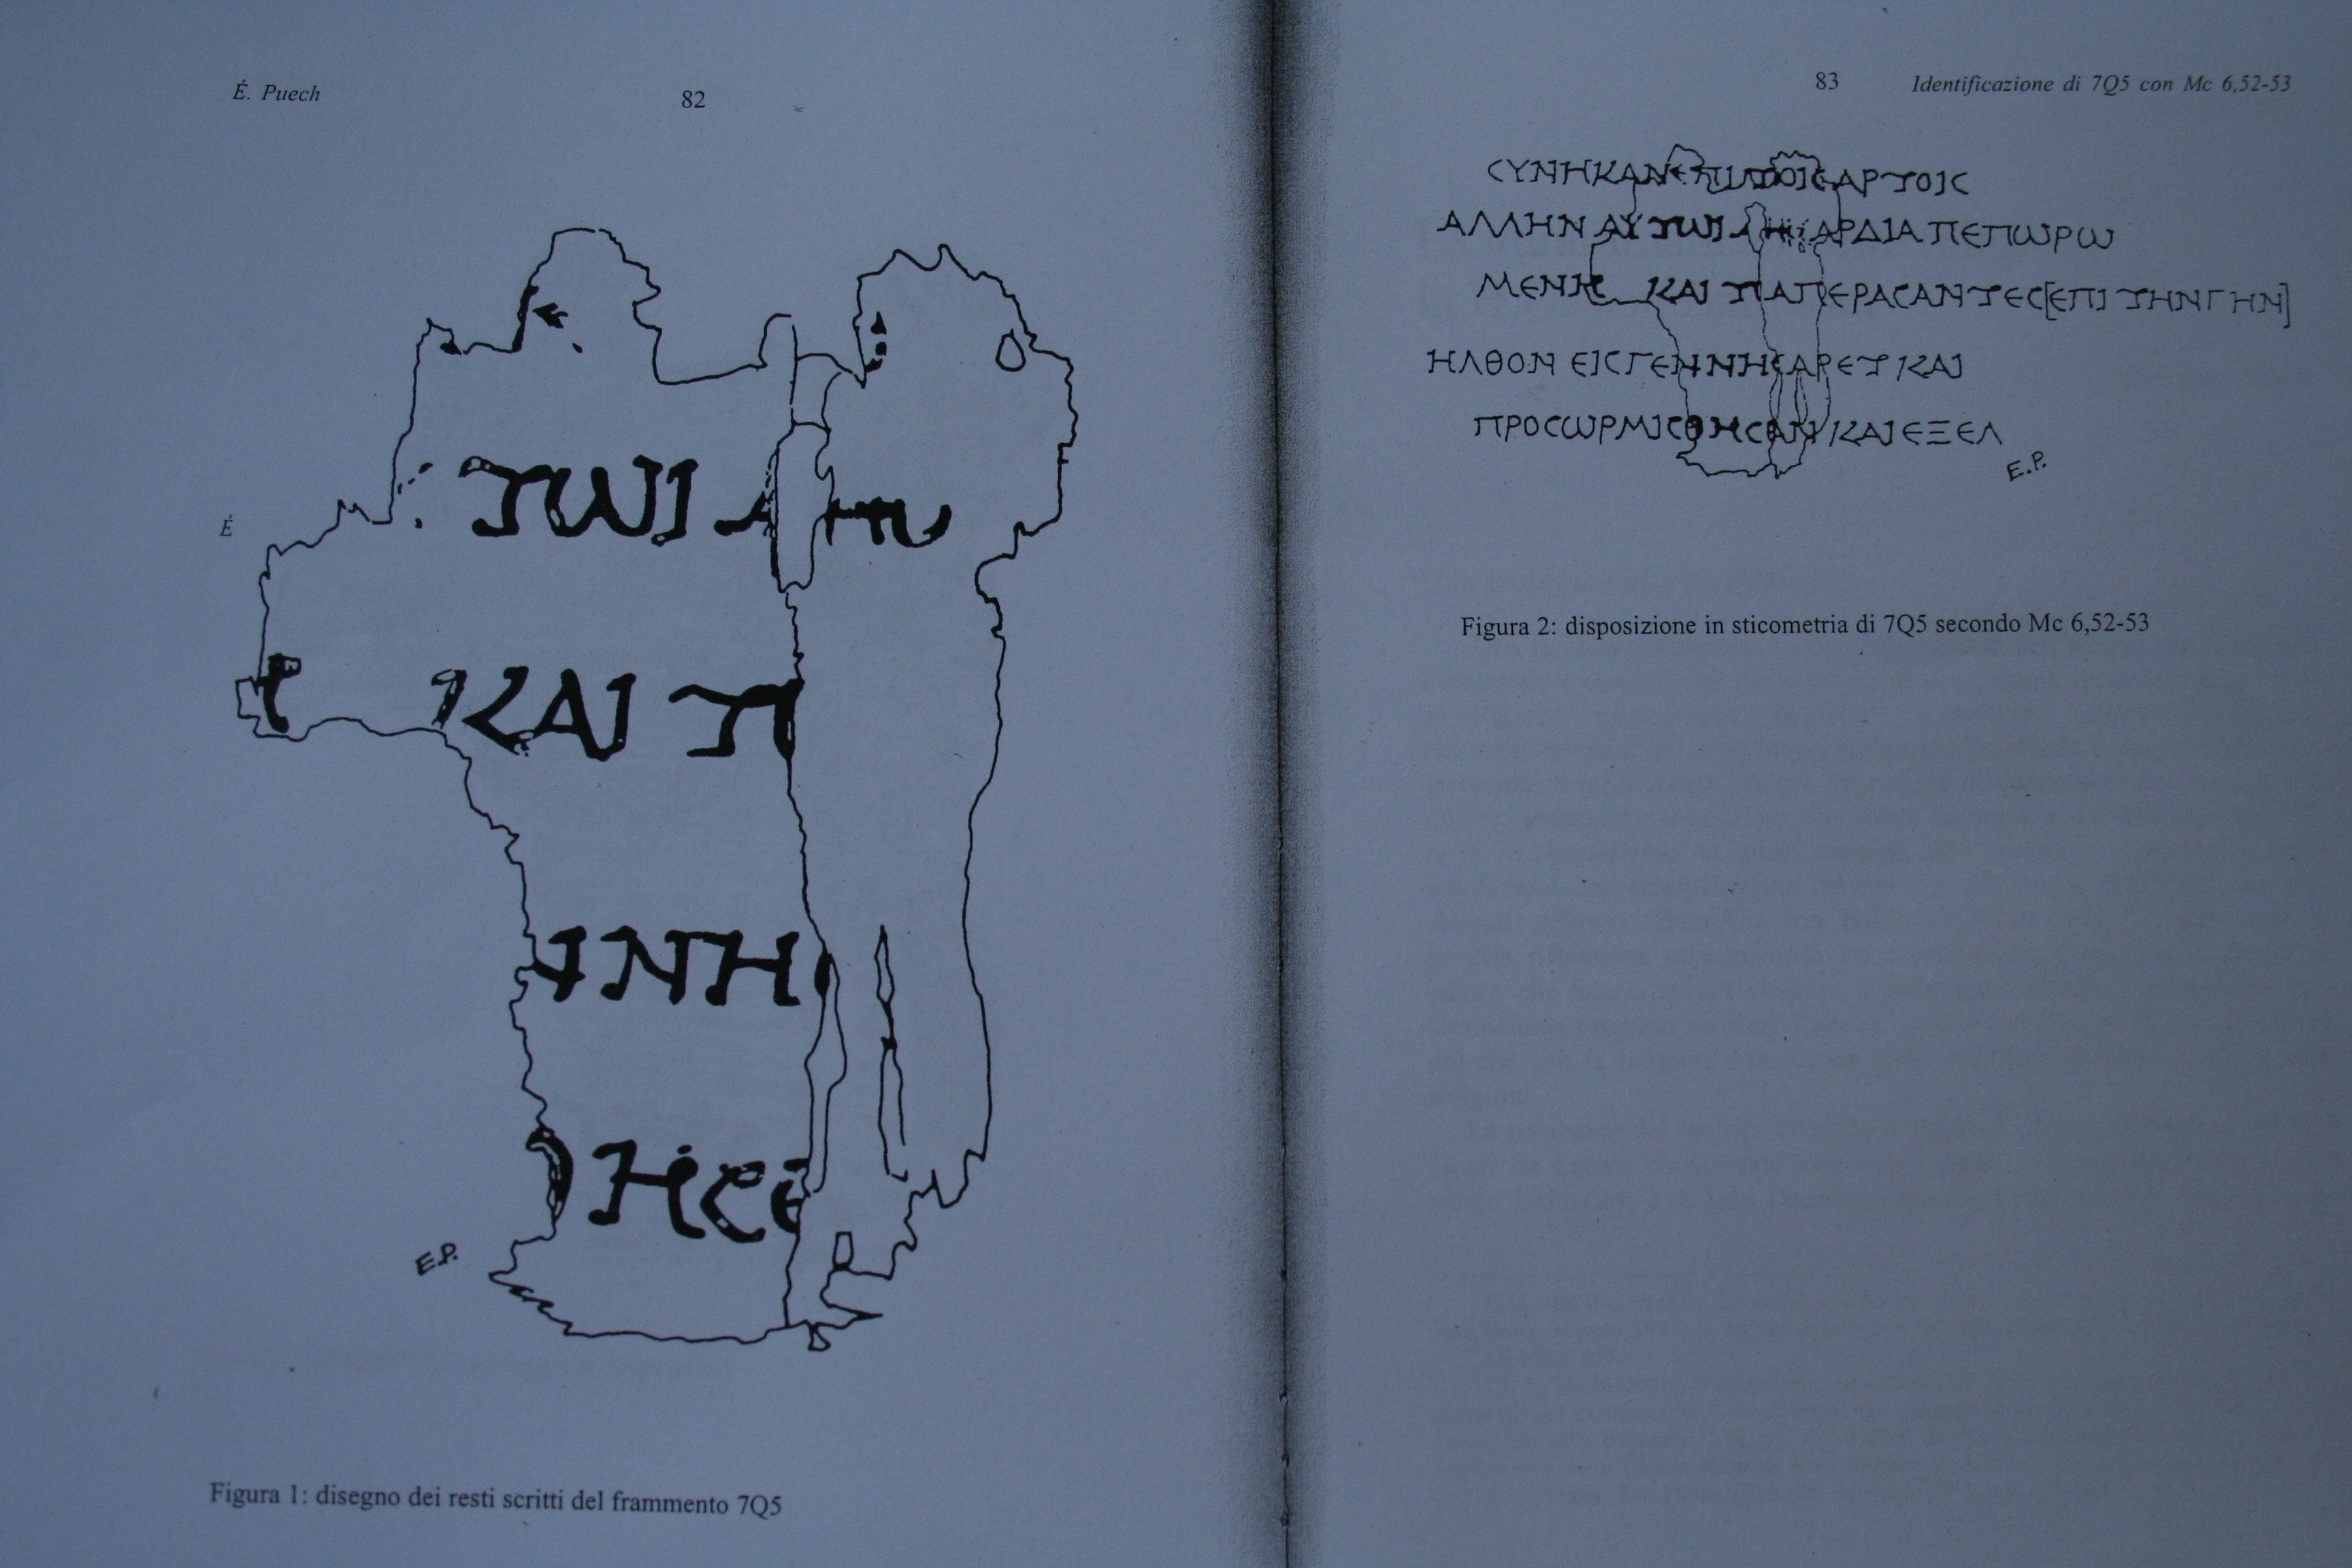 É. Puech
82
É
ΤΩΙ
ΚΑΙ Τ
ΝΝΗ
ΗС
E.P.
Figura 1: disegno dei resti scritti del frammento 7Q5
83
Identificazione di 7Q5 con Mc 6,52-53
СΥΝΗΚΑΝΕΠΙΤΟΙСΑΡΤΟΙС
ΑΛΛΗΝ ΑΥΤΩΙ ΑΡΔΙΑ ΠΕΠΩΡΩ
ΜΕΝΗ ΚΑΙ ΤΙΑΠΕΡΑСΑΝΤΕС[ΕΠΙ ΤΗΝ ΓΗΝ]
ΗΛΘΟΝ ΕΙС ΓΕΝΝΗСΑΡΕΤ ΚΑΙ
ΠΡΟСΩΡΜΙСΘΗСΑΝ ΚΑΙ ΕΞΕΛ
E.P.
Figura 2: disposizione in sticometria di 7Q5 secondo Mc 6,52-53